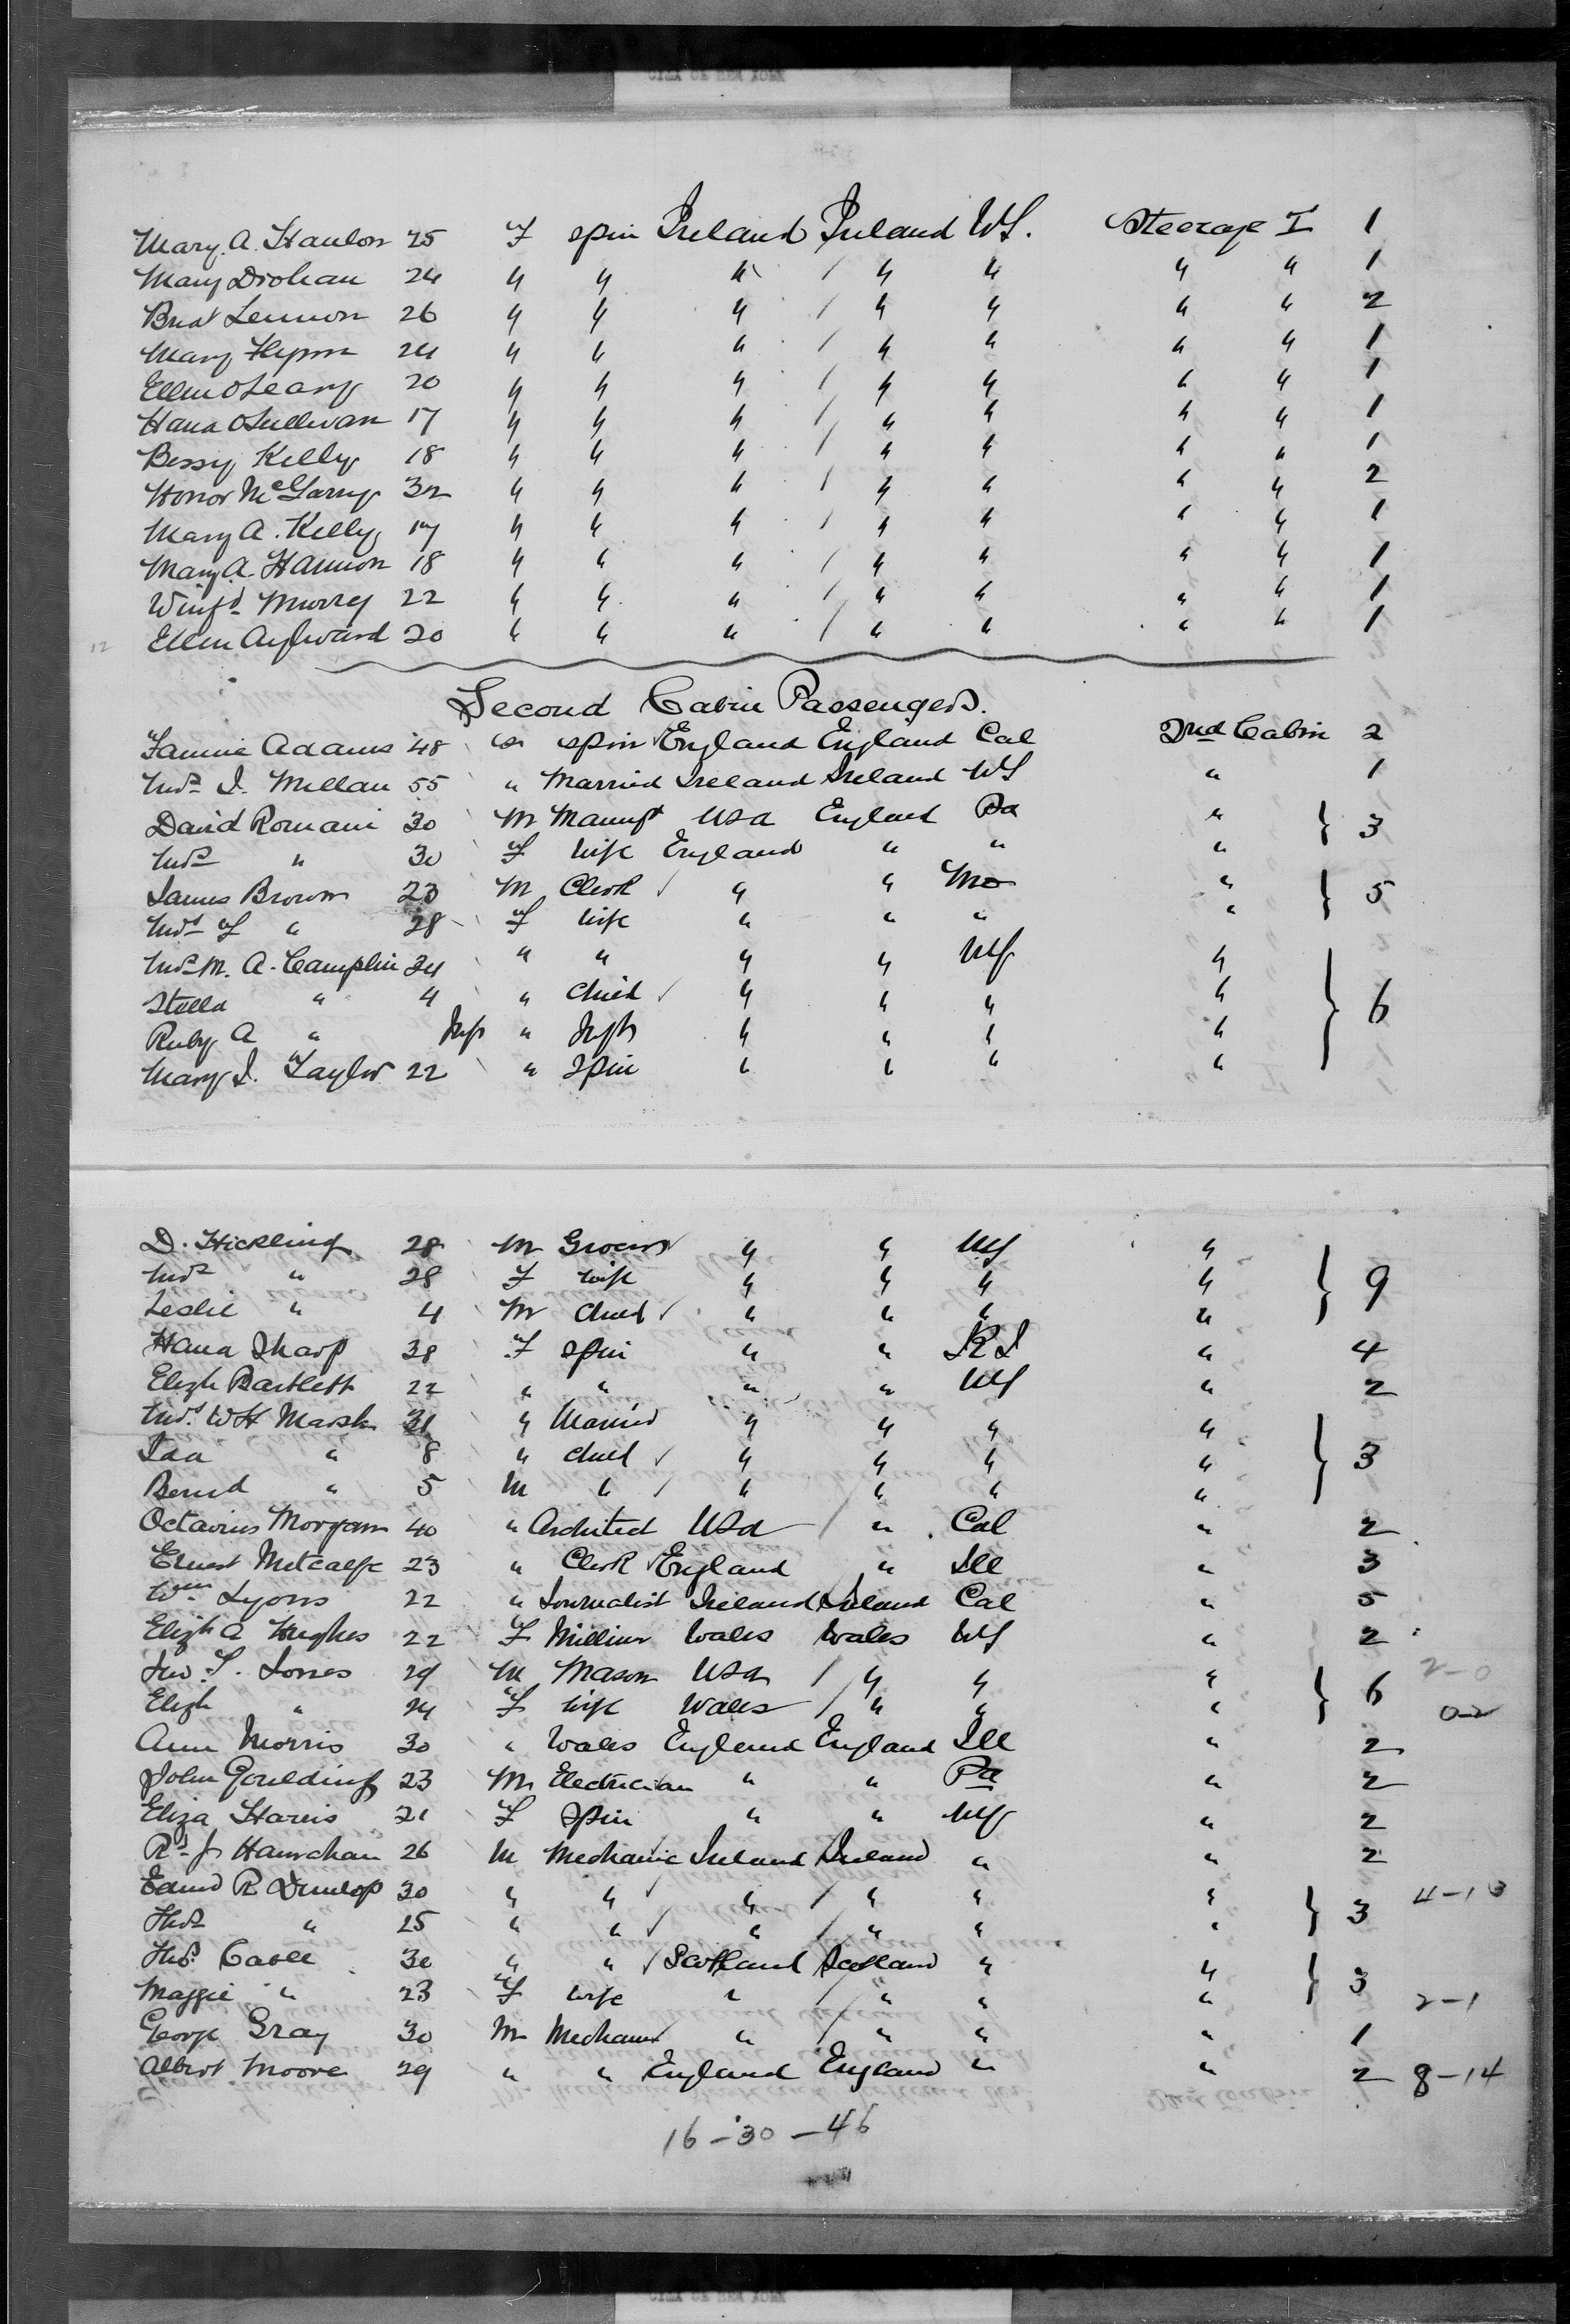 CITY OF NEW YORK
Mary A. Hanlon 25 F spin Ireland Ireland NY. Steerage I 1
Mary Drohan 24 " " " / " " " " 1
Brid Lennon 26 " " " / " " " " 2
Mary Flynn 24 " " " / " " " " 1
Ellen OLeary 20 " " " / " " " " 1
Hana OSullivan 17 " " " / " " " " 1
Bessy Kelly 18 " " " / " " " " 1
Honor McGarry 32 " " " / " " " " 2
Mary A. Kelly 17 " " " / " " " " 1
Mary A. Hannon 18 " " " / " " " " 1
Winfd Murray 22 " " " / " " " " 1
12 Ellen Aylward 20 " " " / " " " " 1
Second Cabin Passengers.
Fannie Adams 48 " spin England England Cal 2nd Cabin 2
Mrs I. Millan 55 " Married Ireland Ireland NY " 1
David Romani 30 M Manuft USA England Pa " } 3
Mrs " 30 F wife England " " "
James Brown 23 M Clerk / " " Mo " } 5
Mrs F " 28 F wife " " " "
Mrs M. A. Camplin 24 " " " " NY " } 6
Stella " 4 " child / " " " "
Ruby A " Inft " Inft " " " "
Mary J. Taylor 22 " Spin " " " "
D. Hickling 28 M Grocer / " " NY " } 9
Mrs " 28 F wife " " " "
Leslie " 4 M child / " " " "
Hana Sharp 38 F spin " " RI " 4
Elizh Bartlett 22 " " " " NY " 2
Mrs. WH Marsh 31 " Married " " " " } 3
Ida " 8 " child / " " " "
Bernd " 5 M " / " / " " "
Octavius Morgan 40 " Architect USA / " Cal " 2
Ernest Metcalfe 23 " Clerk / England " Ill " 3
Wm Lyons 22 " Journalist Ireland Ireland Cal " 5
Elizh A Hughes 22 F Milliner Wales Wales NY " 2
Jno. S. Jones 29 M Mason USA / " " " } 6 2-0
Elizh " 24 F wife Wales / " " " 0-2
Ann Morris 30 " Wales England England Ill " 2
John Goulding 23 M Electrician " " Pa " 2
Eliza Harris 21 F Spin " " NY " 2
Rd J Hanrahan 26 M Mechanic Ireland Ireland " " 2
Edmd R Dunlop 30 " " / " / " " " } 3 4-13
Thos " 25 " " / " / " " "
Thos. Cable 30 " " / Scotland Scotland " " } 3
Maggie " 23 F wife " / " " " 2-1
George Gray 30 M Mechanic " / " " " 1
Albert Moore 29 " " England England " " 2 8-14
16-30-46
CITY OF NEW YORK